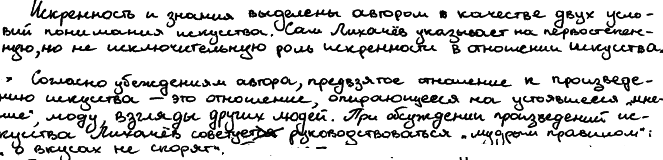 Искренность и знания выделены автором в качестве двух усло-
вий понимания искусства. Сам Лихачёв указывает на первостепен-
ную, но не исключительную роль искренности в отношении искусства.
Согласно убеждениям автора, предвзятое отношение к произведе-
нию искусства — это отношение, опирающееся на устоявшееся „мне-
ние", моду, взгляды других людей. При обсуждении произведений ис-
кусства Лихачёв советует руководствоваться „мудрым правилом":
„о вкусах не спорят".